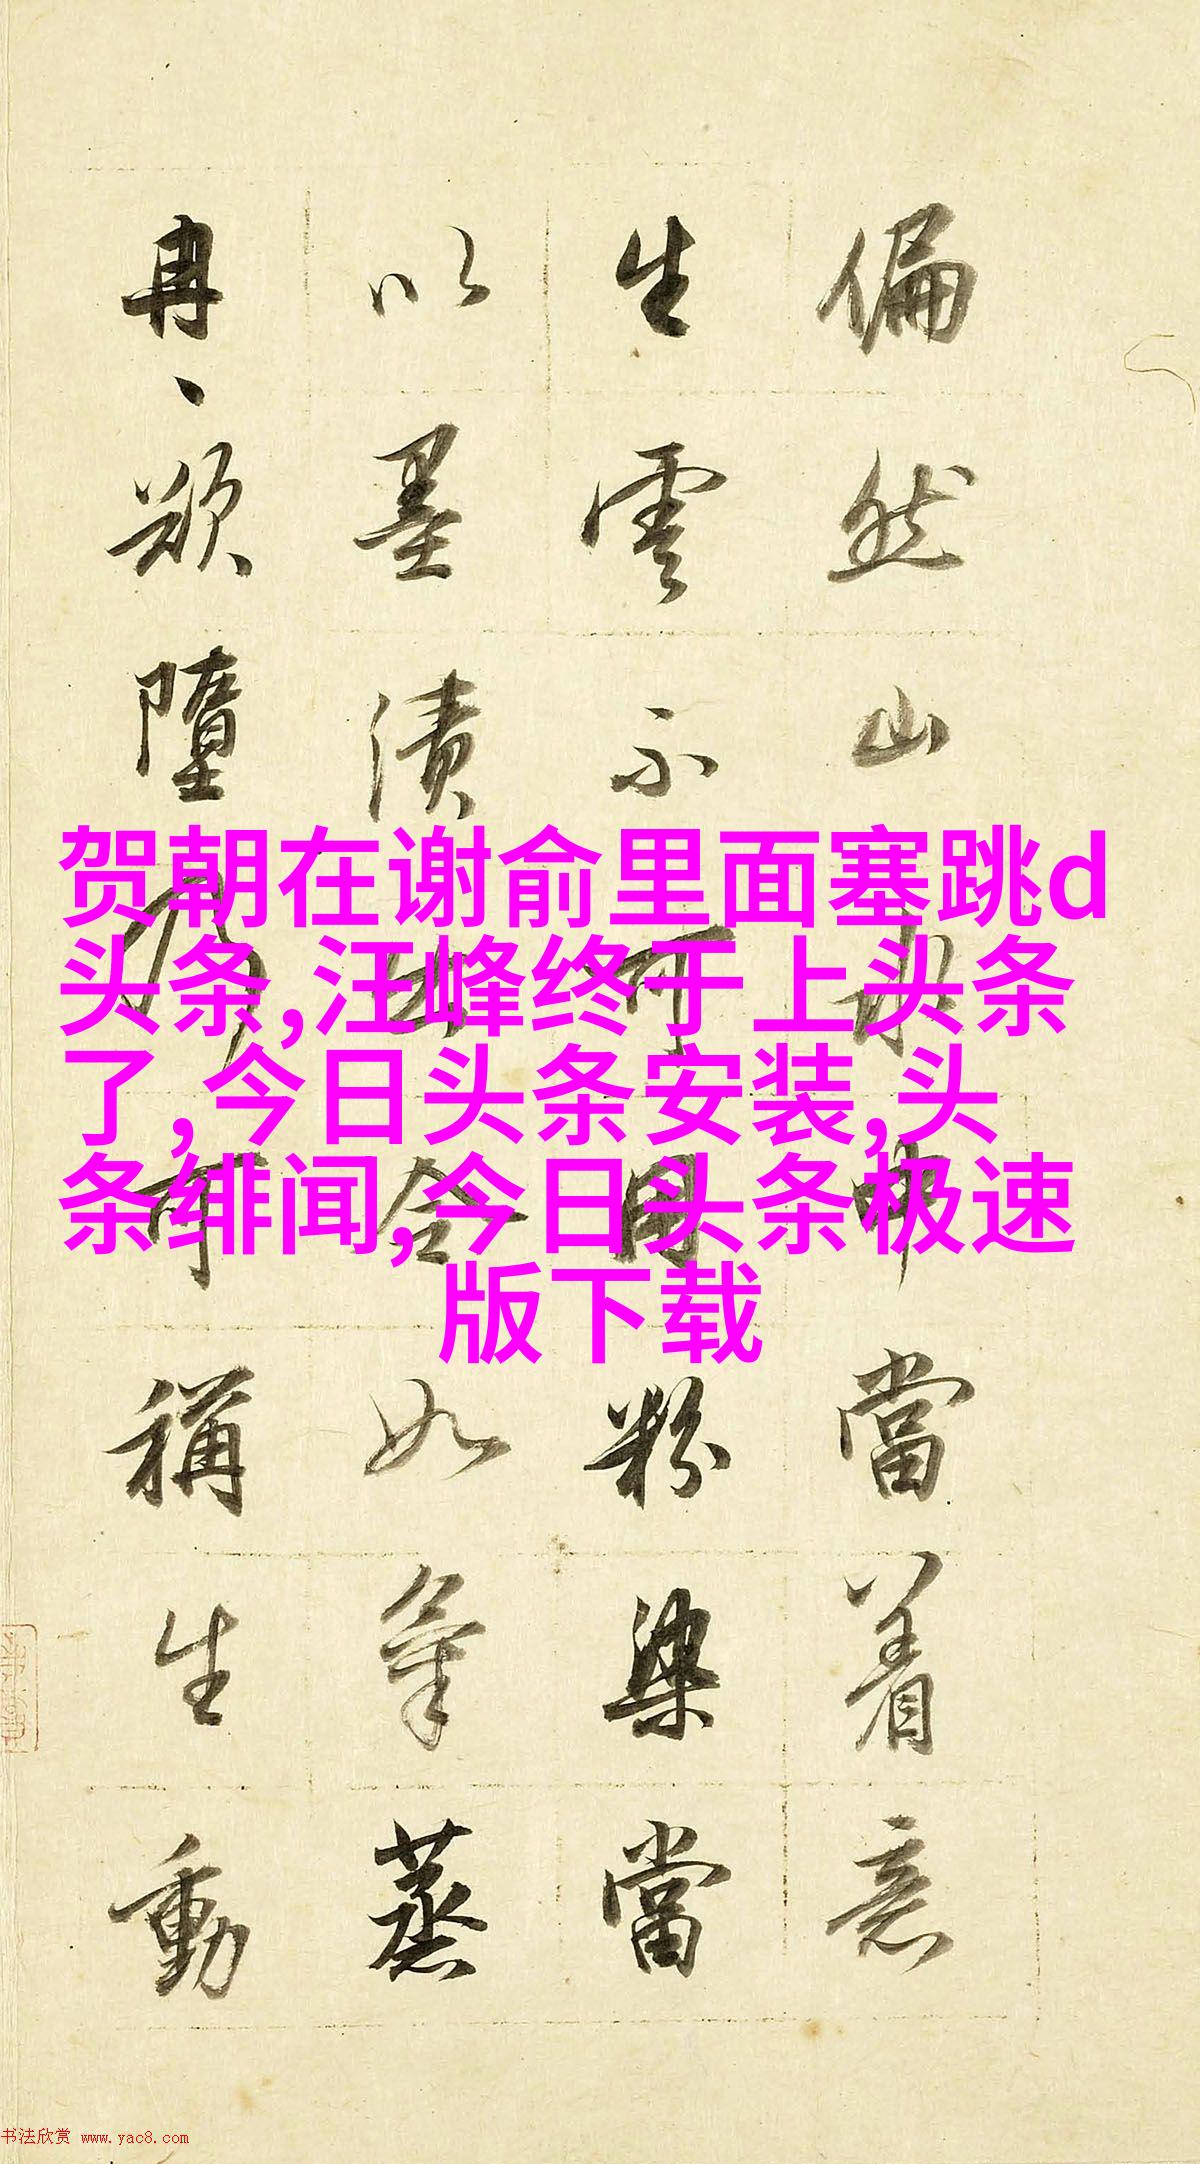 贺朝在谢俞里面塞跳d
头条,汪峰终于上头条
了,今日头条安装,头
条绯闻,今日头条极速
版下载
偏然山水中當着意
生雲不可用粉染當
以墨漬出令如氣蒸
冉、欲墮乃可稱生動
书法欣赏 www.yac8.com